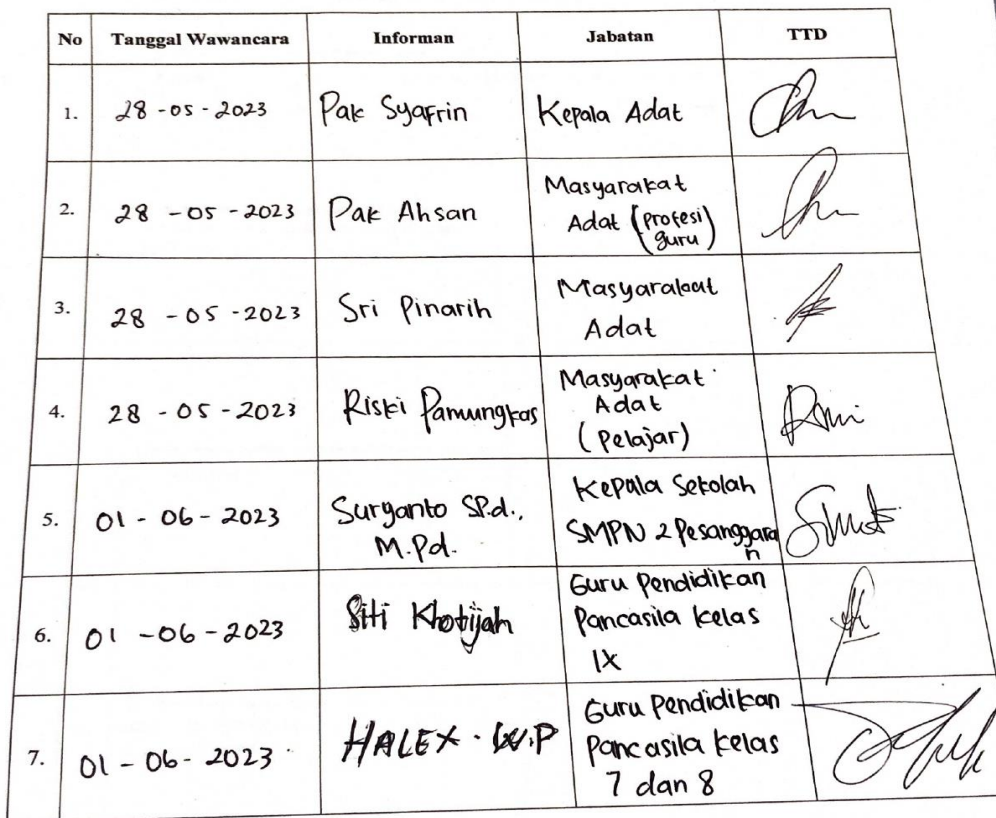 No Tanggal Wawancara Informan Jabatan TTD
1. 28-05-2023 Pak Syafrin Kepala Adat
2. 28-05-2023 Pak Ahsan Masyarakat
Adat (profesi
guru)
3. 28-05-2023 Sri Pinarih Masyarakat
Adat
4. 28-05-2023 Riski Pamungkas Masyarakat
Adat
(Pelajar)
5. 01-06-2023 Suryanto SP.d.,
M.Pd.
Kepala Sekolah
SMPN 2 Pesanggaran
6. 01-06-2023 Siti Khotijah Guru Pendidikan
Pancasila Kelas
IX
7. 01-06-2023 HALEX. W.P Guru Pendidikan
Pancasila kelas
7 dan 8